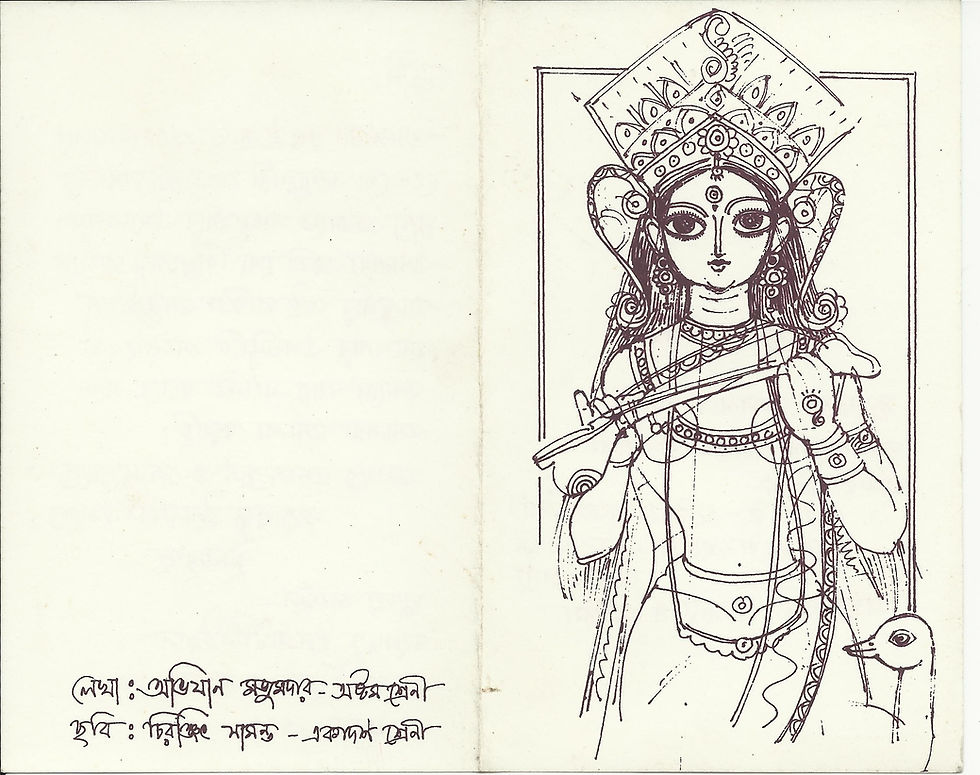 লেখা : অভিযান মজুমদার - অষ্টম শ্রেনী
ছবি : চিরঞ্জিৎ সামন্ত - একাদশ শ্রেনী